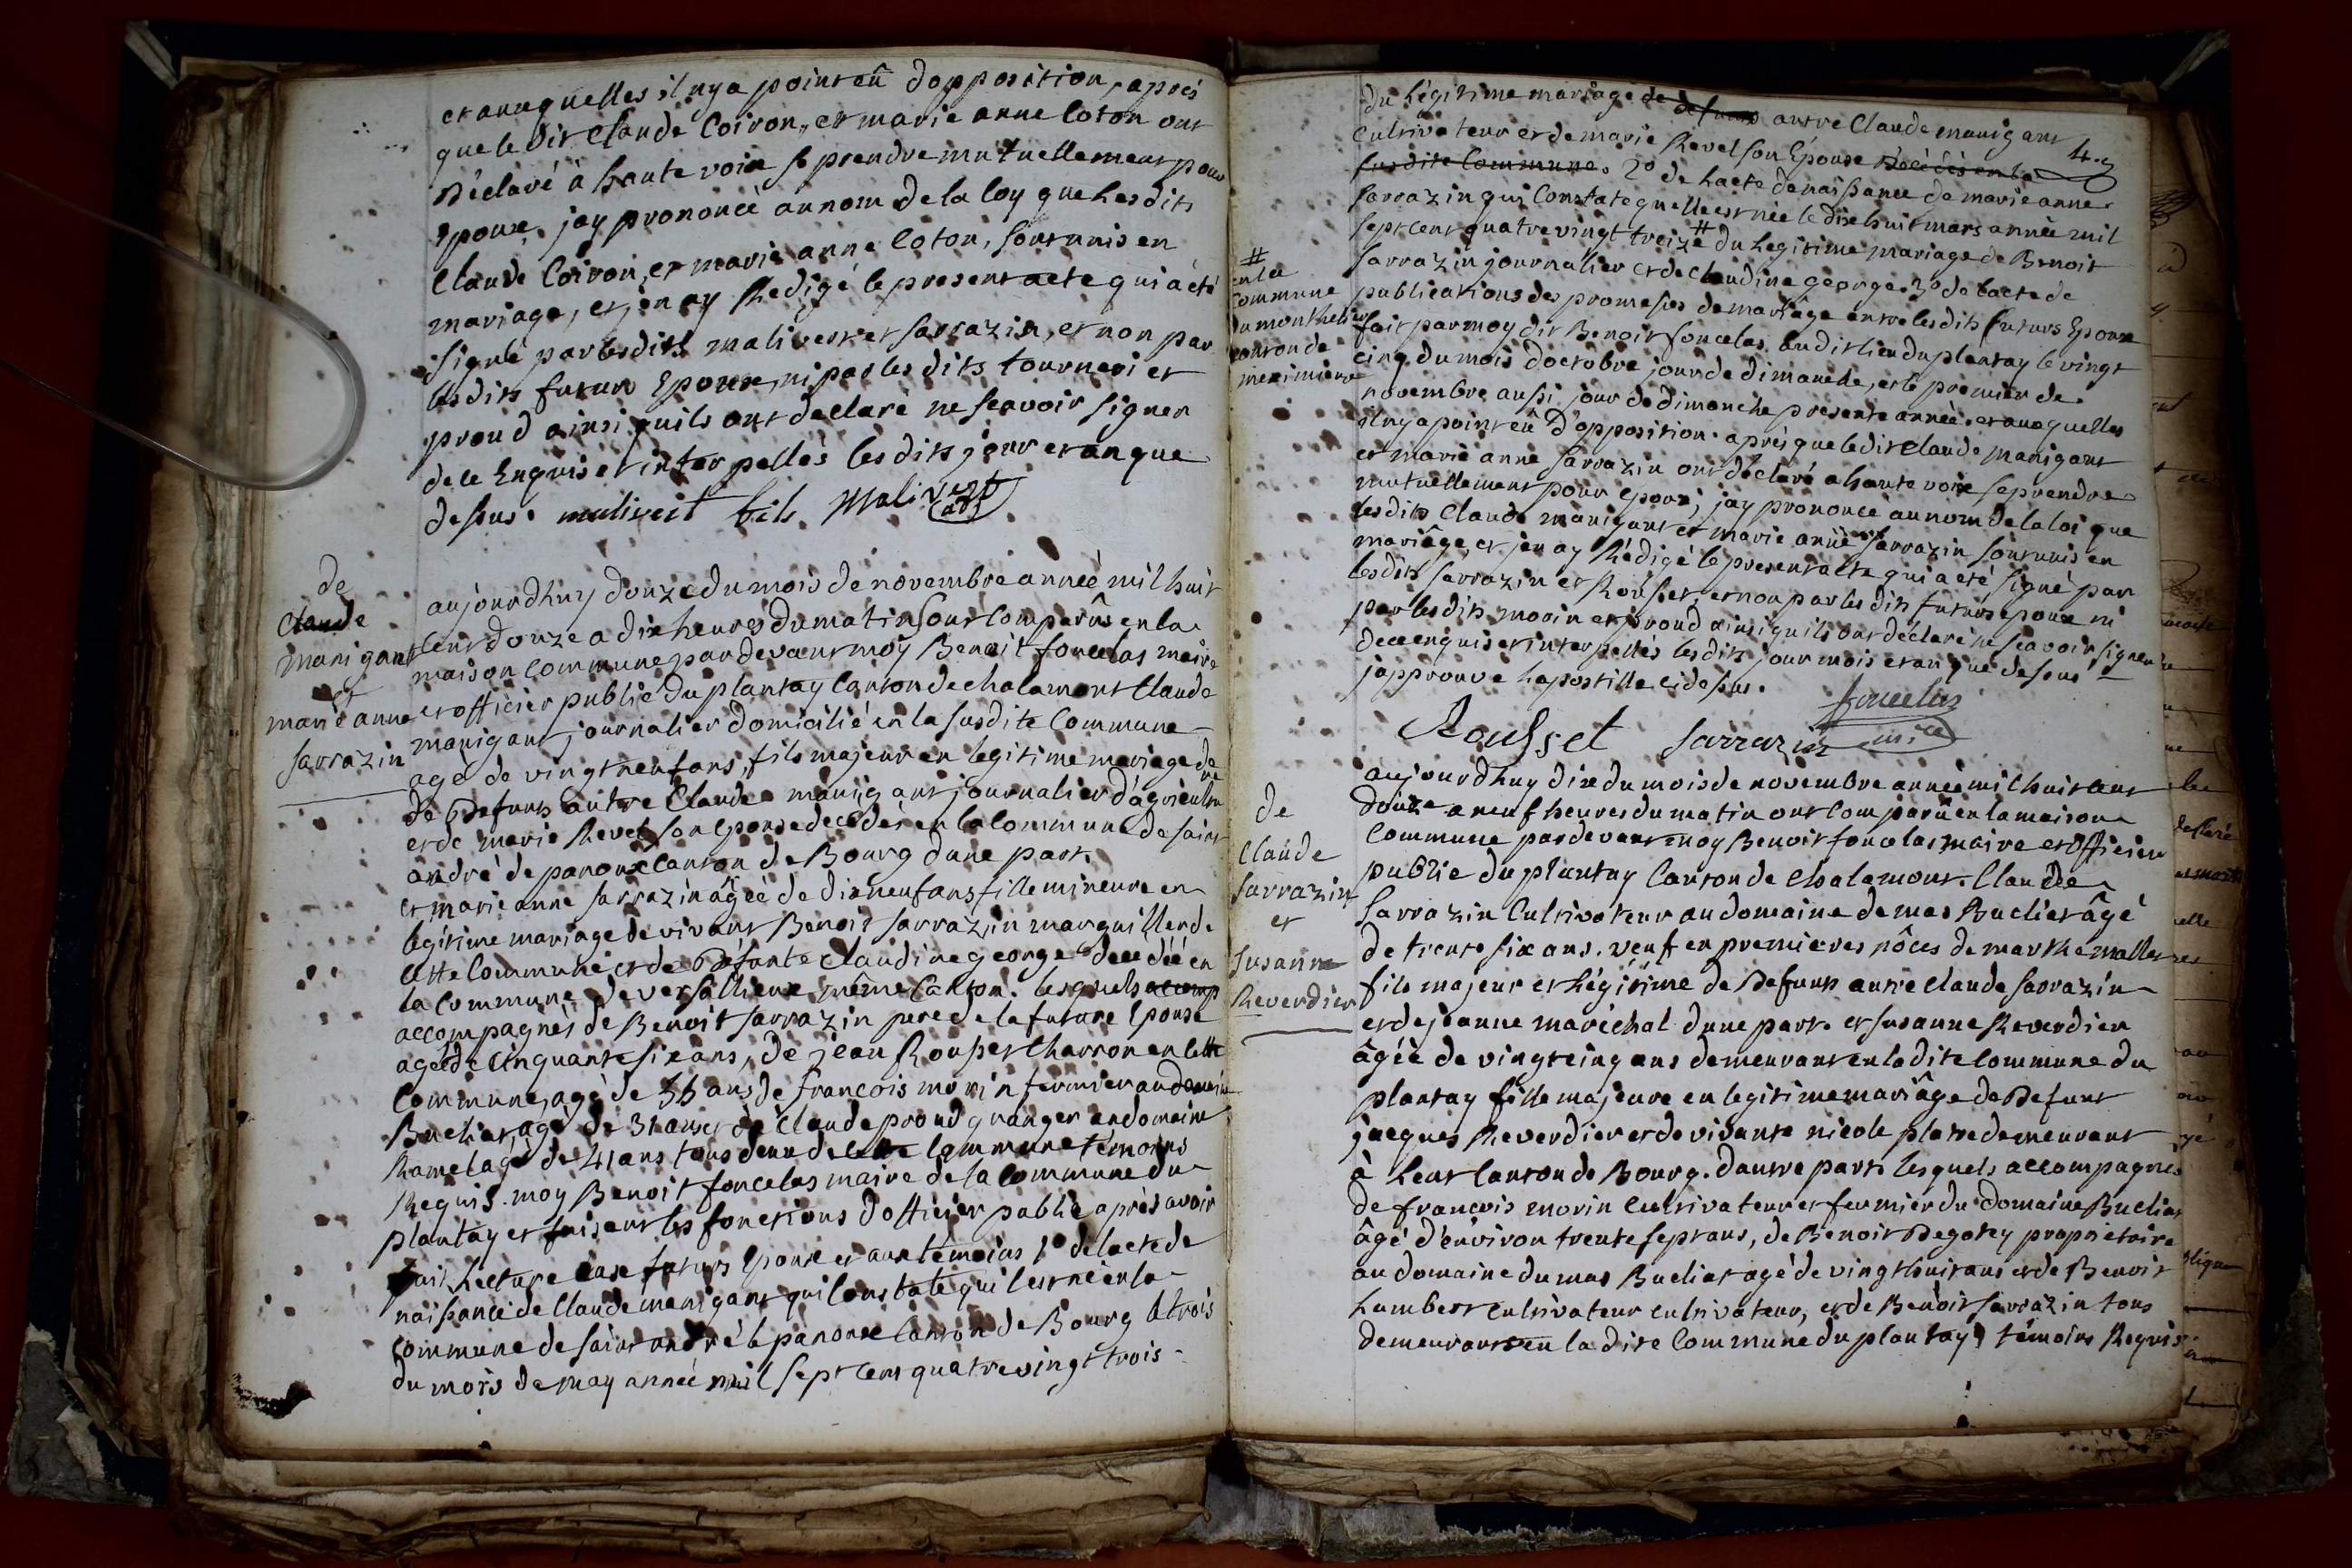 et auxquelles il ny a point eû dopposition, aprés
que le dit Claude Coiron, et marie anne loton ont
Déclaré à haute voix se prendre mutuellement pour
Epoux, jay prononcé au nom de la loy que lesdits
Claude Coiron, et marie anne loton, sont unis en
mariage, et jen ay Redigé le present acte qui a été
signé par lesdits malivert et sarrazin, et non par
lesdits futurs Epoux, ni par les dits tourneri et
proud ainsi quils ont declaré ne scavoir signer
de ce Enquis et interpellés lesdits jour et an que
dessus. malivert fils Malivert adj
de
Claude
manigant
et
marie anne
sarrazin
aujourdhuy douze du mois de novembre année mil huit
cent douze a dix heures du matin sont Comparûs en la
maison Commune pardevant moy Benoit foncelas maire
et officier public du plantay Canton de chalamont Claude
manigant journalier domicilié en la susdite Commune
agé de vingt neuf ans, fils majeur en legitime mariage de
de Defunt autre Claude manigant journalier dagriculture
et de marie Revel son Epouse decédés en la Commune de saint
andré de panoux Canton de Bourg dune part.
et marie anne sarrazin agée de dix neuf ans fille mineure en
legitime mariage de vivant Benoit sarrazin marguiller de
cette Commune et de Défunte Claudine george decedée en
la Commune de versallieux même Canton. lesquels accomp
accompagnés de Benoit sarrazin pere de la future Epouse
agé de Cinquante six ans, de jean Rousset Charron en cette
Commune, agé de 36 ans de francois morin fermier au domaine
Buclier, agé de 31 ans et de Claude proud granger au domaine
Ramel agé de 41 ans tous deux de cette Commune temoins
Requis. moy Benoit foncelas maire de la Commune du
plantay et faisant les fonctions dofficier public après avoir
fait Lecture aux futurs Epoux et aux témoins 1o de lacte de
naissance de Claude manigant qui Constate quil est né en la
Commune de saint andré le panoux Canton de Bourg le trois
du mois de may année mil sept cent quatre vingt trois
4.
du légitime mariage de defunt autre Claude manigant
Cultivateur et de marie Revel son Epouse Décédés en la
susdite Commune. 2o de lacte de naissance de marie anne
sarrazin qui Constate quelle est née le dix huit mars année mil
sept cent quatre vingt treize # du legitime mariage de Benoit
sarrazin journalier et de Claudine george. 3o de lacte de
publications des promesses de mariage entre lesdits futurs Epoux
fait par moy dit Benoit foncelas audit lieu du plantay le vingt
cinq du mois doctobre jour de dimanche, et le premier de
novembre aussi jour de dimanche presente année. et auxquelles
il ny a point eû d'opposition. après que ledit Claude manigant
et marie anne sarrazin ont déclaré a haute voix se prendre
mutuellement pour epoux; jay prononcé au nom de la loi que
lesdits Claude manigant et marie anne sarrazin sont unis en
mariage, et jen ay Rédigé le present acte qui a eté signé par
lesdits sarrazin et Rousset, et non par les dits futurs epoux ni
par les dits morin et proud ainsi quils ont déclaré ne scavoir signer
de ce enquis et interpellés lesdits jour mois et an que dessus
japprouve lapostille cidessus.
foncelas
Rousset sarrazin m.re
#
en la
Commune
du monthelier
canton de
meximieux
de
Claude
Sarrazin
et
Susanne
Reverdier
aujourdhuy dix du mois de novembre année mil huit cent
douze a neuf heures du matin ont Comparû en la maison
Commune pardevant moy Benoit foncelas maire et Officier
public du plantay Canton de Chalamont. Claude
Sarrazin Cultivateur au domaine de mas Buclier âgé
de trente six ans. veuf en premieres nôces de marthe mallet
fils majeur et Légitime de Defunt autre Claude sarrazin
et de jeanne maréchal dune part. et susanne Reverdier
âgée de vingt cinq ans demeurant en la dite Commune du
plantay fille majeure en legitime mariâge de Defunt
jacques Reverdier et de vivante nicole platre demeurant
à Lent Canton de Bourg. dautre part. lesquels accompagnés
de francois morin Cultivateur et fermier du Domaine Buclier
âgé d'environ trente sept ans, de Benoit Degotey propriétaire
au domaine du mas Buclier agé de vingt huit ans et de Benoit
Lambert cultivateur cultivateur, et de Benoit sarrazin tous
demeurants en la dite Commune du plantay, témoins Requis